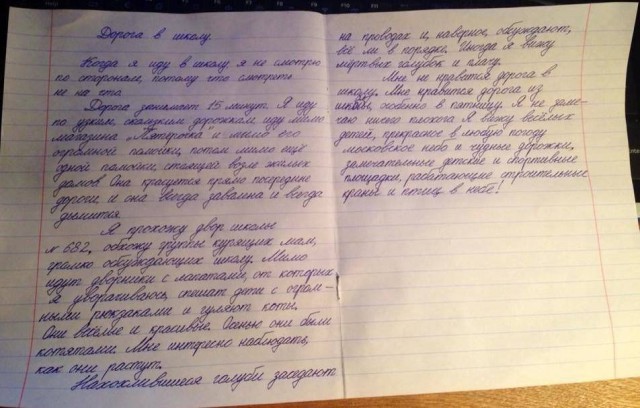 Дорога в школу.
Когда я иду в школу я не смотрю
по сторонам, потому что смотреть
не на что.
Дорога занимает 15 минут. Я иду
по узким скользким дорожкам, иду мимо
магазина „Пятёрочка" и мимо его
огромной помойки, потом мимо ещё
одной помойки, стоящей возле жилых
домов. Она красуется прямо посередине
дороги и она всегда завалена и всегда
дымится.
Я прохожу двор школы
№ 682, обхожу группы курящих мам,
громко обсуждающих школу. Мимо
идут дворники с лопатами, от которых
я уворачиваюсь, спешат дети с огром-
ными рюкзаками и гуляют коты.
Они весёлые и красивые. Осенью они были
котятами. Мне интересно наблюдать,
как они растут.
Нахохлившиеся голуби заседают
на проводах и, наверное, обсуждают,
всё ли в порядке. Иногда я вижу
мёртвых голубок и плачу.
Мне не нравится дорога в
школу. Мне нравится дорога из
школы, особенно в пятницу. Я не заме-
чаю ничего плохого. Я вижу весёлых
детей, прекрасное в любую погоду
московское небо и чудные дорожки,
замечательные детские и спортивные
площадки, работающие строительные
краны и птиц в небе!